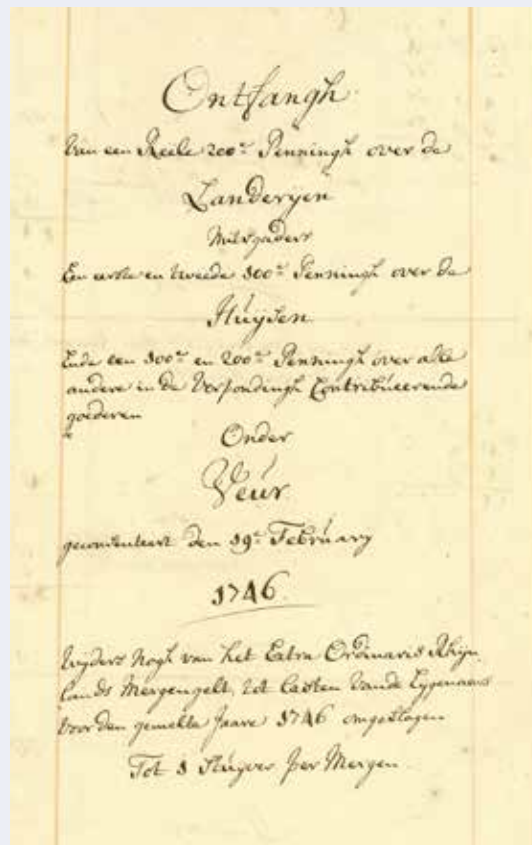 Ontfangh
Van een Reele 200e Penningh over de
Landeryen
Mitsgaders
Een eerste en tweede 100e Penningh over de
Huysen
Ende een 100e en 200e Penningh over alle
andere in de Verpondingh Contribueerende
goederen
Onder
Veur
geconsenteert den 19e February
1746
Wyders nogh van het Extra Ordinaris Rhyn
lands Mergengelt, tot lasten vande Eygenaars
voor den gemelte Jaare 1746 omgeslagen
Tot 1 Stuyver per Mergen